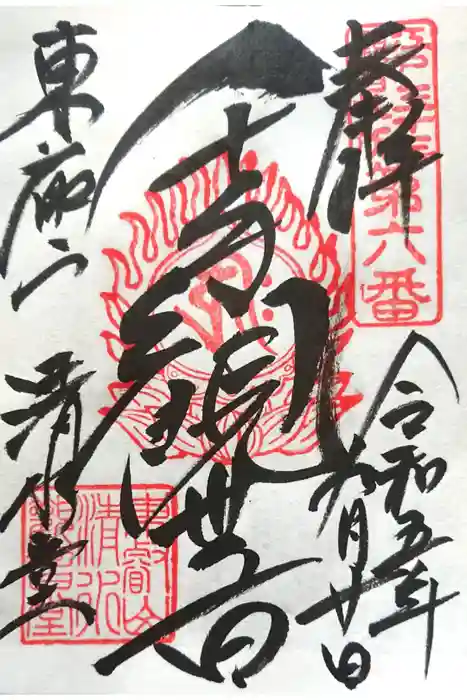 奉拝
第六番
令和五年
九月廿日
千手観世音
東叡山
清水堂
東叡山
清水
観音堂